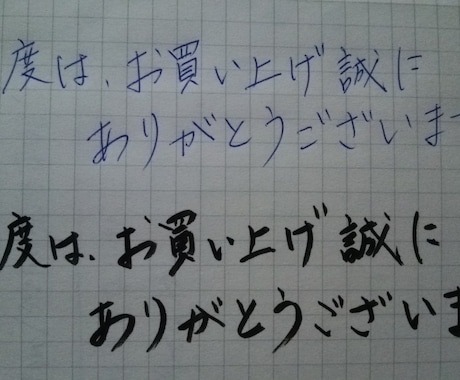 度は、お買い上げ誠に
ありがとうございま
度は、お買い上げ誠に
ありがとうございま